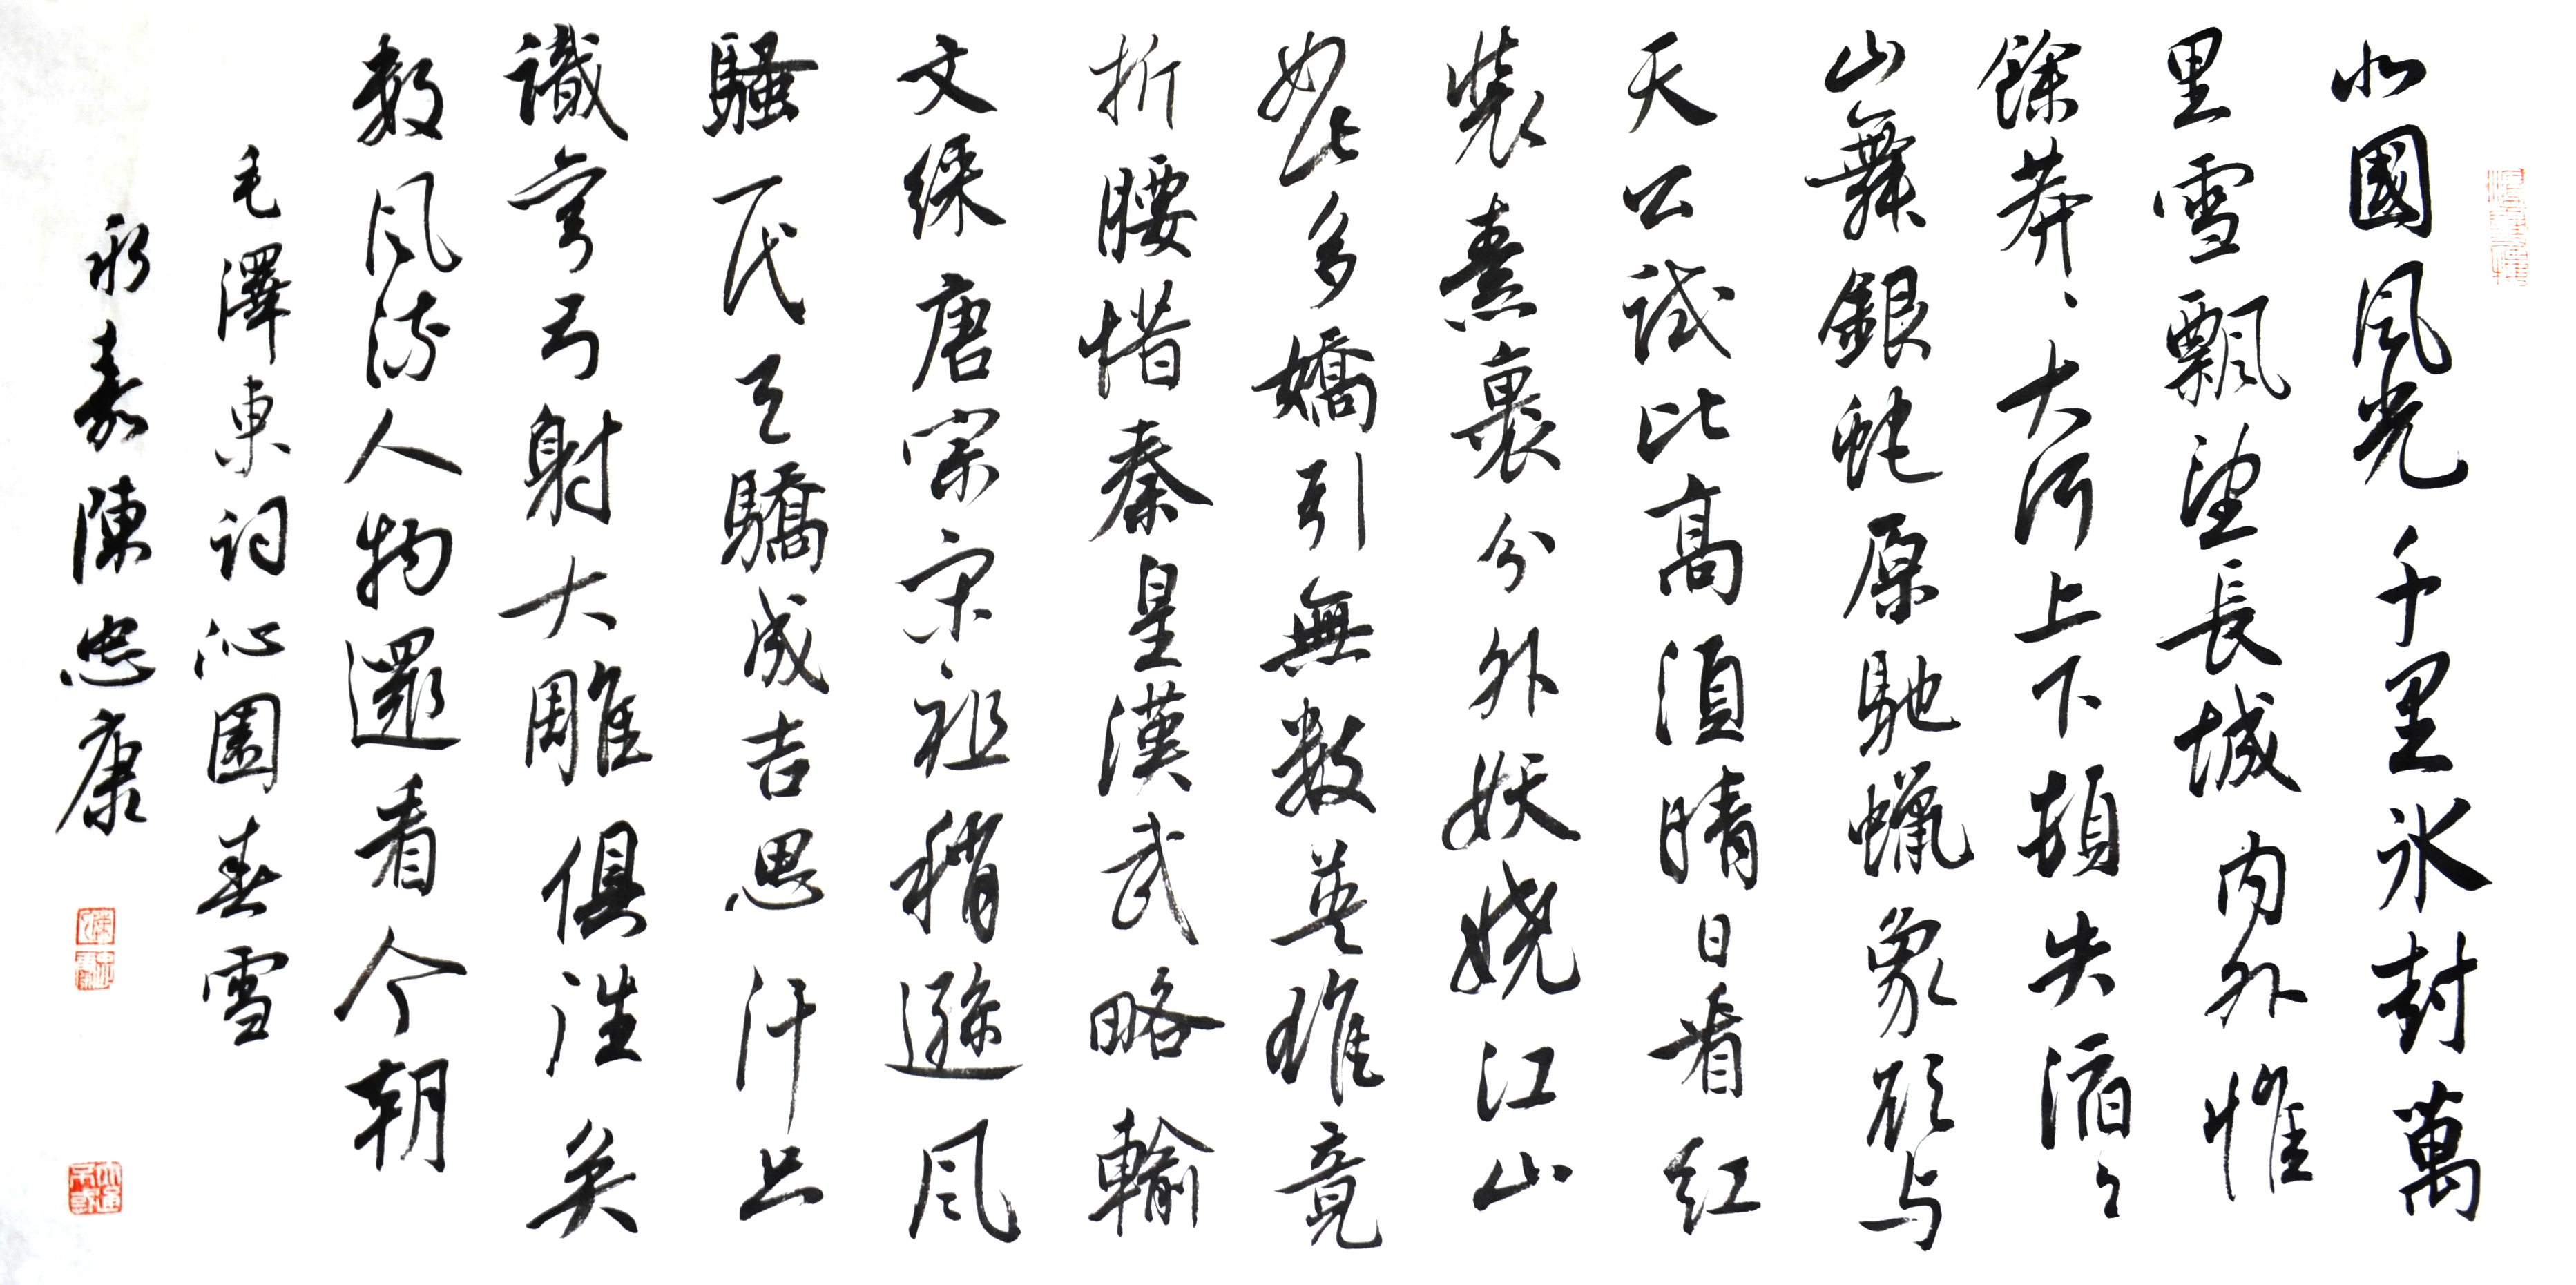 北國風光千里冰封萬
里雪飄望長城内外惟
餘莽々大河上下頓失滔々
山舞銀蛇原馳蠟象欲与
天公試比高須晴日看紅
裝素裹分外妖嬈江山
如此多嬌引無數英雄竟
折腰惜秦皇漢武略輸
文綵唐宗宋祖稍遜風
騷一代天驕成吉思汗只
識彎弓射大雕俱往矣
数風流人物還看今朝
毛澤東詞沁園春雪
永嘉陳忠康